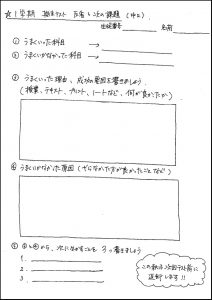 ☆1学期 期末テスト 反省と次の課題（中2）
生徒番号 名前
① うまくいった科目 →
② うまくいかなかった科目 →
③ うまくいった理由、成功の要因を書きましょう。
（授業、テキスト、プリント、ノートなど、何が良かったか）
④ うまくいかなかった原因（やらなかった方が良かったことなど）
⑤ ③と④から、次にいかすことを3つ書きましょう
1.
2.
3.
この紙は次回テスト前に
返却します!!